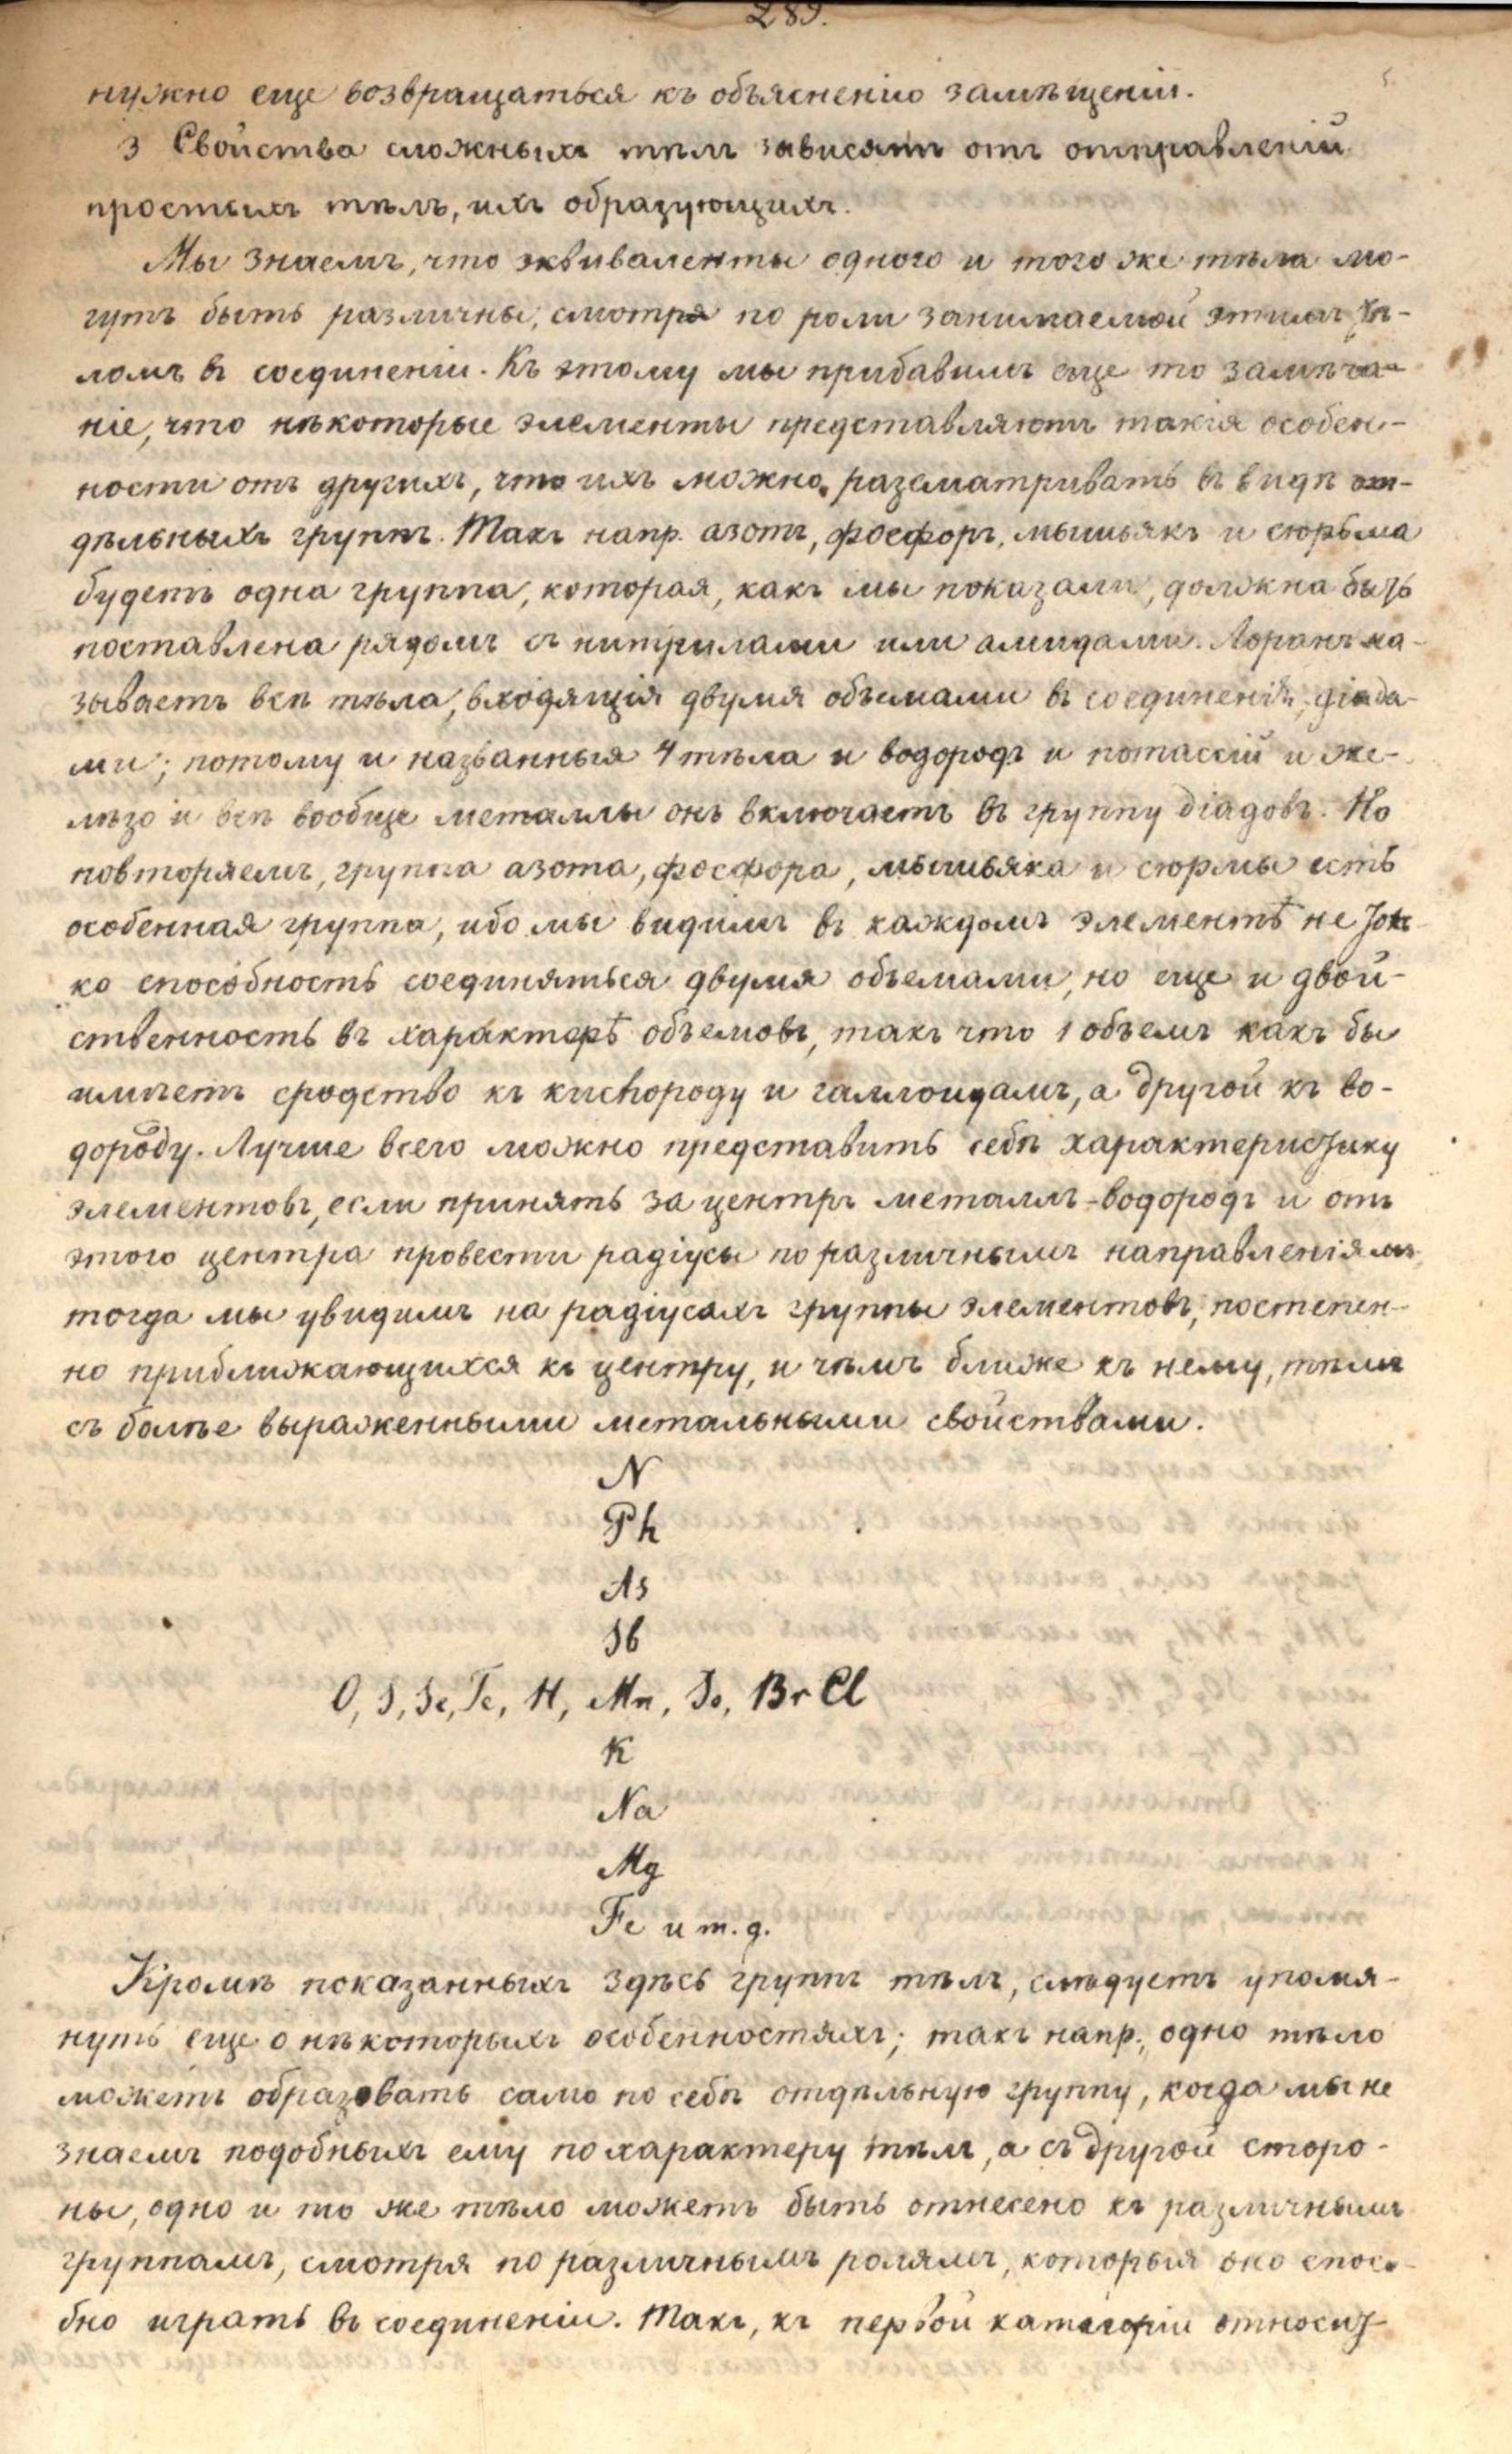 289.
нужно еще возвращаться къ объясненію замѣщеній.
3 Свойства сложныхъ тѣлъ зависятъ отъ отправленій
простыхъ тѣлъ, ихъ образующихъ.
Мы знаемъ, что эквиваленты одного и того же тѣла мо-
гутъ быть различны, смотря по роли занимаемой этимъ тѣ-
ломъ въ соединеніи. Къ этому мы прибавимъ еще то замѣча-
ніе, что нѣкоторые элементы представляютъ такія особен-
ности отъ другихъ, что ихъ можно разсматривать въ видѣ от-
дѣльныхъ группъ. Такъ напр. азотъ, фосфоръ, мышьякъ и сюрьма
будетъ одна группа, которая, какъ мы показали, должна быть
поставлена рядомъ съ нитрилами или амидами. Лоранъ на-
зываетъ всѣ тѣла, входящія двумя объемами въ соединенія, діада-
ми; потому и названныя 4 тѣла и водородъ и потассій и же-
лѣзо и всѣ вообще металлы онъ включаетъ въ группу діадовъ. Но
повторяемъ, группа азота, фосфора, мышьяка и сюрмы есть
особенная группа, ибо мы видимъ въ каждомъ элементѣ не толь-
ко способность соединяться двумя объемами, но еще и двой-
ственность въ характерѣ объемовъ, такъ что 1 объемъ какъ бы
имѣетъ сродство къ кислороду и галлоидамъ, а другой къ во-
дороду. Лучше всего можно представить себѣ характеристику
элементовъ, если принять за центръ металлъ-водородъ и отъ
этого центра провести радіусы по различнымъ направленіямъ,
тогда мы увидимъ на радіусахъ группы элементовъ, постепен-
но приближающихся къ центру, и чѣмъ ближе къ нему, тѣмъ
съ болѣе выраженными метальными свойствами.
N
Ph
As
Sb
O, S, Se, Te, H, Mn, Jo, Br Cl
K
Na
Mg
Fe и т. д.
Кромѣ показанныхъ здѣсь группъ тѣлъ, слѣдуетъ упомя-
нуть еще о нѣкоторыхъ особенностяхъ; такъ напр., одно тѣло
можетъ образовать само по себѣ отдѣльную группу, когда мы не
знаемъ подобныхъ ему по характеру тѣлъ, а съ другой сторо-
ны, одно и то же тѣло можетъ быть отнесено къ различнымъ
группамъ, смотря по различнымъ ролямъ, которыя оно спосо-
бно играть въ соединеніи. Такъ, къ первой категоріи относит-